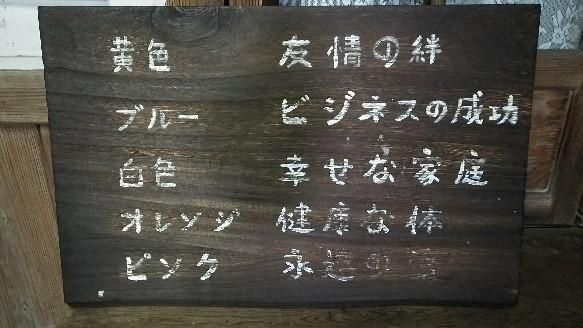 黄色 友情の絆
ブルー ビジネスの成功
白色 幸せな家庭
オレンジ 健康な体
ピンク 永遠の